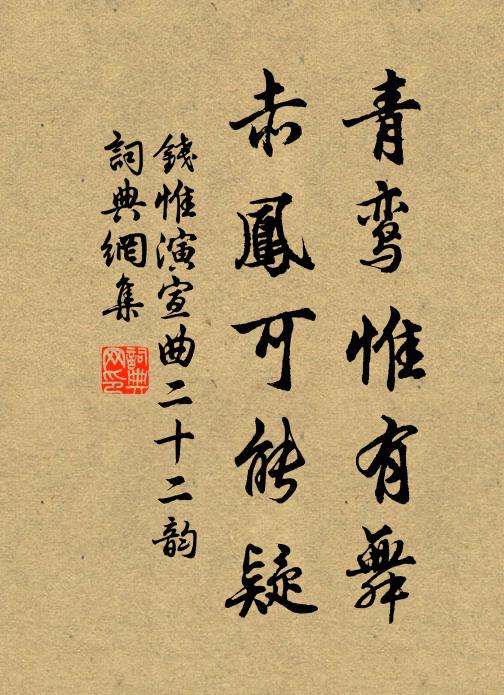 青鸾惟有舞
赤鳳可能疑
錢惟演宣曲二十二韵
詞典網集
詞典網印